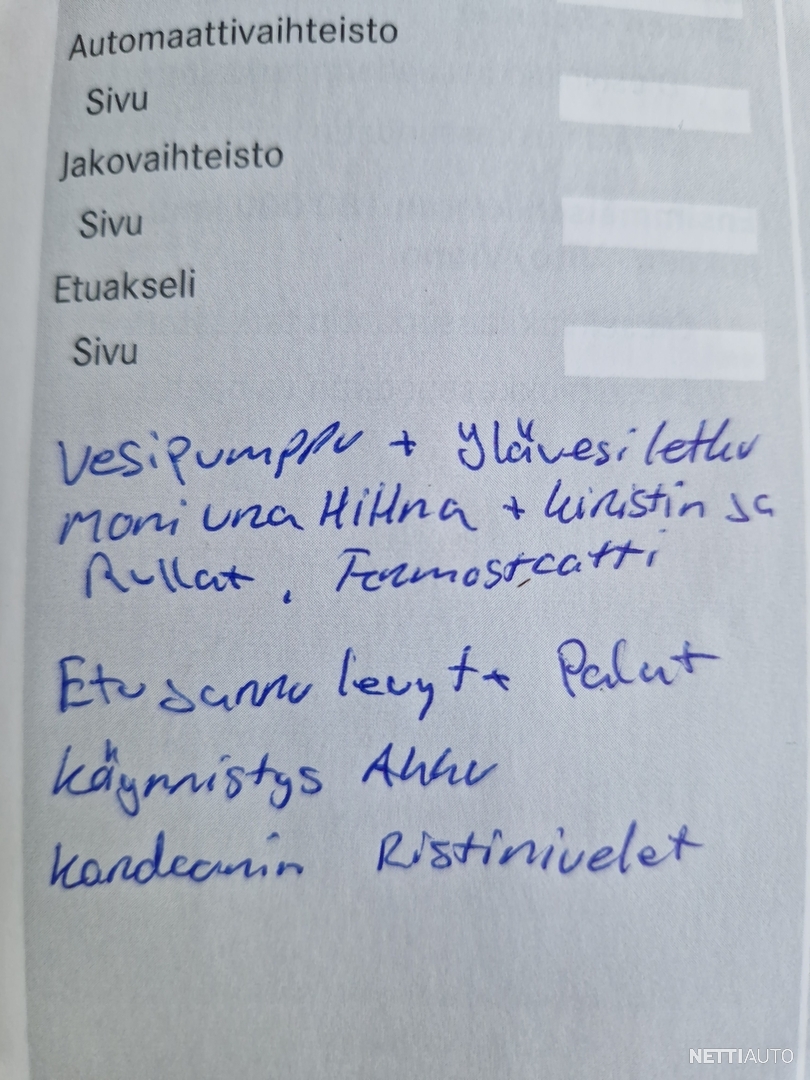 Automaattivaihteisto
Sivu
Jakovaihteisto
Sivu
Etuakseli
Sivu
Vesipumppu + Ylävesiletku
moniura Hihna + kiristin ja
Rullat, Termostaatti
Etu jarru levyt + Palat
käynnistys Akku
kardaanin Ristinivelet
NETTIAUTO